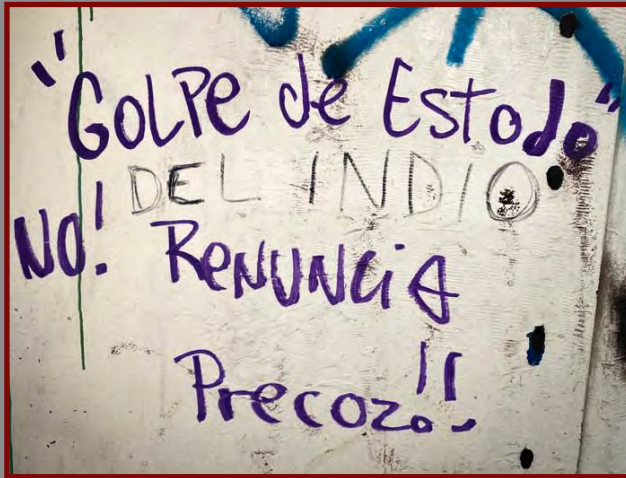 "GOLPe de Estado"
DEL INDIO
NO! ReNUNCiA
Precoz!!